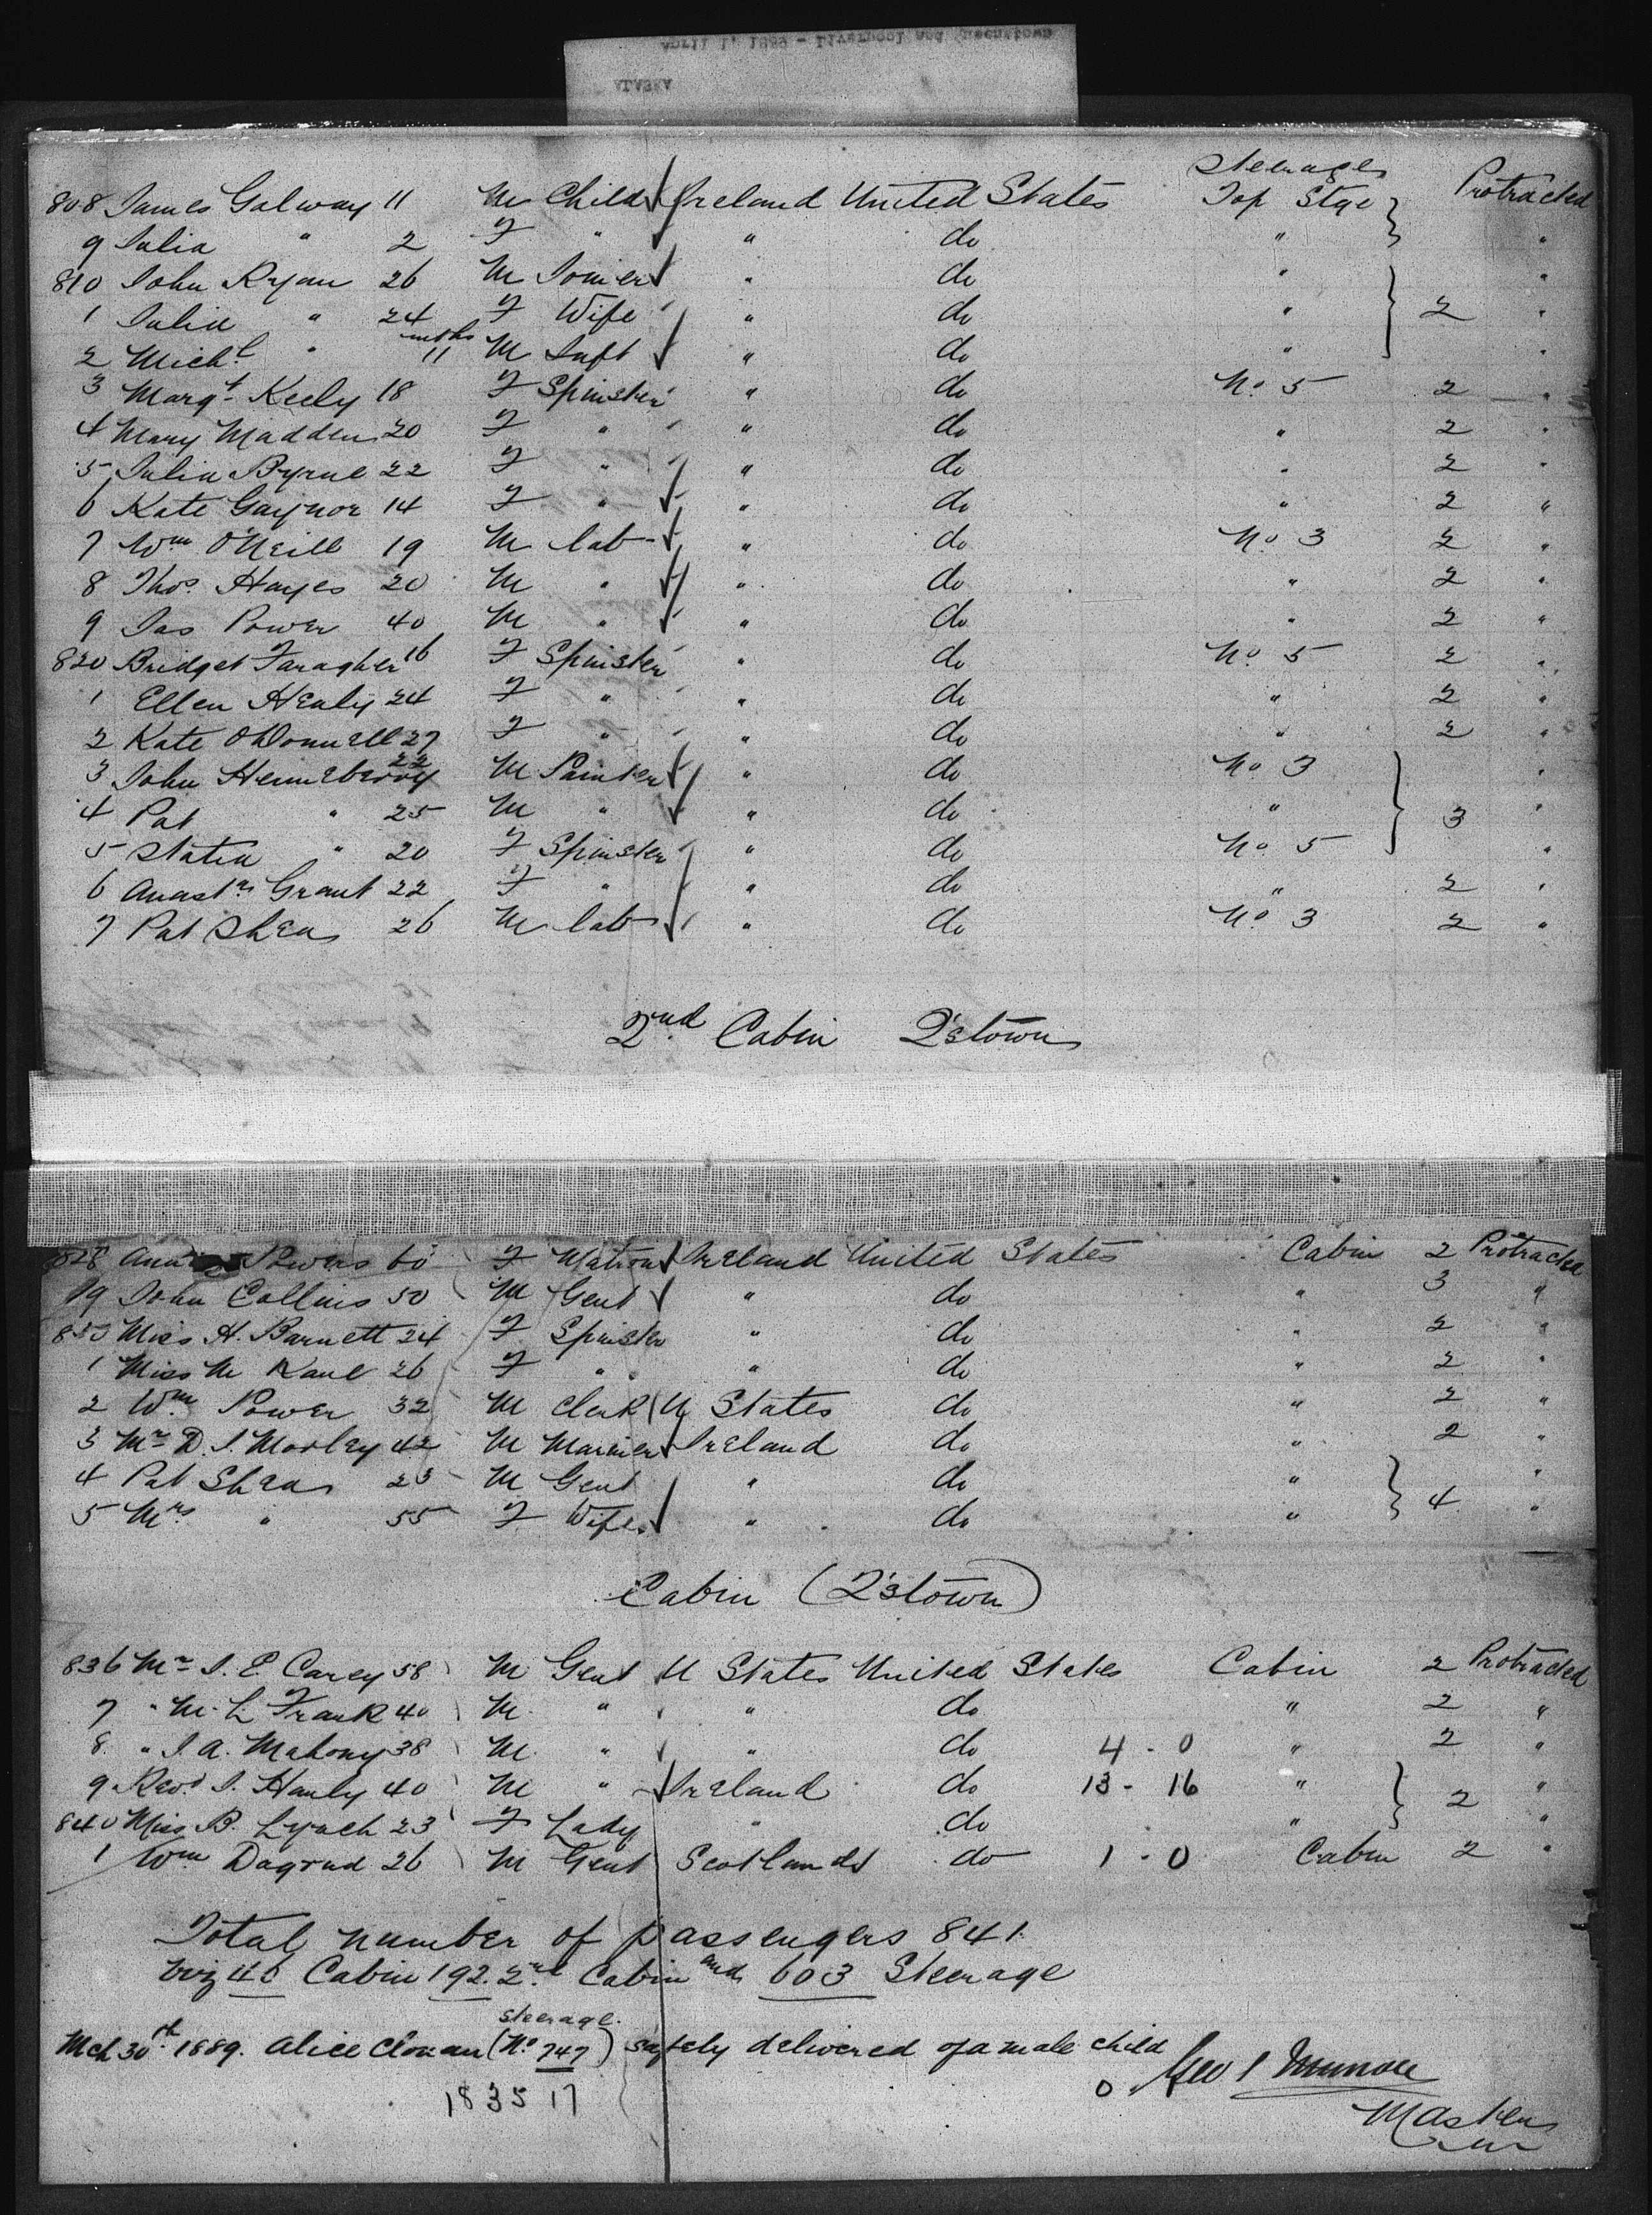 April 1, 1889 - Liverpool and Queenstown
ALASKA
Steerage
808 James Galway 11 M Child Ireland United States Top Stge Protracted
9 Julia " 2 F " " do " "
810 John Ryan 26 M Joiner " do " "
1 Julia " 24 F Wife " do " 2 "
2 Michl " mths 11 M Inft " do " "
3 Margt Keely 18 F Spinster " do No. 5 2 "
4 Mary Madden 20 F " " do " 2 "
5 Julia Byrne 22 F " " do " 2 "
6 Kate Gaynor 14 F " " do " 2 "
7 Wm O'Neill 19 M lab " do No 3 2 "
8 Thos. Hayes 20 M " " do " 2 "
9 Jas Power 40 M " " do " 2 "
820 Bridget Faragher 16 F Spinster " do No. 5 2 "
1 Ellen Healy 24 F " " do " 2 "
2 Kate O'Donnell 27 F " " do " 2 "
3 John Henneberry 22 M Painter " do No 3 "
4 Pat " 25 M " " do " 3 "
5 Statia " 20 F Spinster " do No. 5 "
6 Anast Grant 22 F " " do " 2 "
7 Pat Shea 26 M lab " do No. 3 2 "
2nd Cabin Q'stown
828 Powers 60 F Matron Ireland United States Cabin 2 Protracted
9 John Collins 50 M Gent " do " 3 "
830 Miss H. Barnett 24 F Spinster " do " 2 "
1 Miss M Kane 26 F " " do " 2 "
2 Wm. Power 32 M Clerk U States do " 2 "
3 Mr D. J. Morley 42 M Mariner Ireland do " 2 "
4 Pat Shea M Gent " do " "
5 Mrs " 55 F Wife " do " 4 "
Cabin (Q'stown)
836 Mr J. E. Carey 58 M Gent U States United States Cabin 2 Protracted
7 " M. L Frank 40 M " " do " 2 "
8 " J. A. Mahony 38 M " " do 4 - 0 " 2 "
9 Revd J. Hanly 40 M " Ireland do 13 - 16 " 2 "
840 Miss B. Lynch 23 F Lady " do " "
1 Wm 26 M Gent Scotland do 1 - 0 Cabin 2 "
Total number of passengers 841
viz Cabin 192 2nd Cabin and 603 Steerage
Mch 30th 1889. Alice Clonan (No 747) steerage. safely delivered of a male child
18 35 17
0
Geo S Munroe
Master